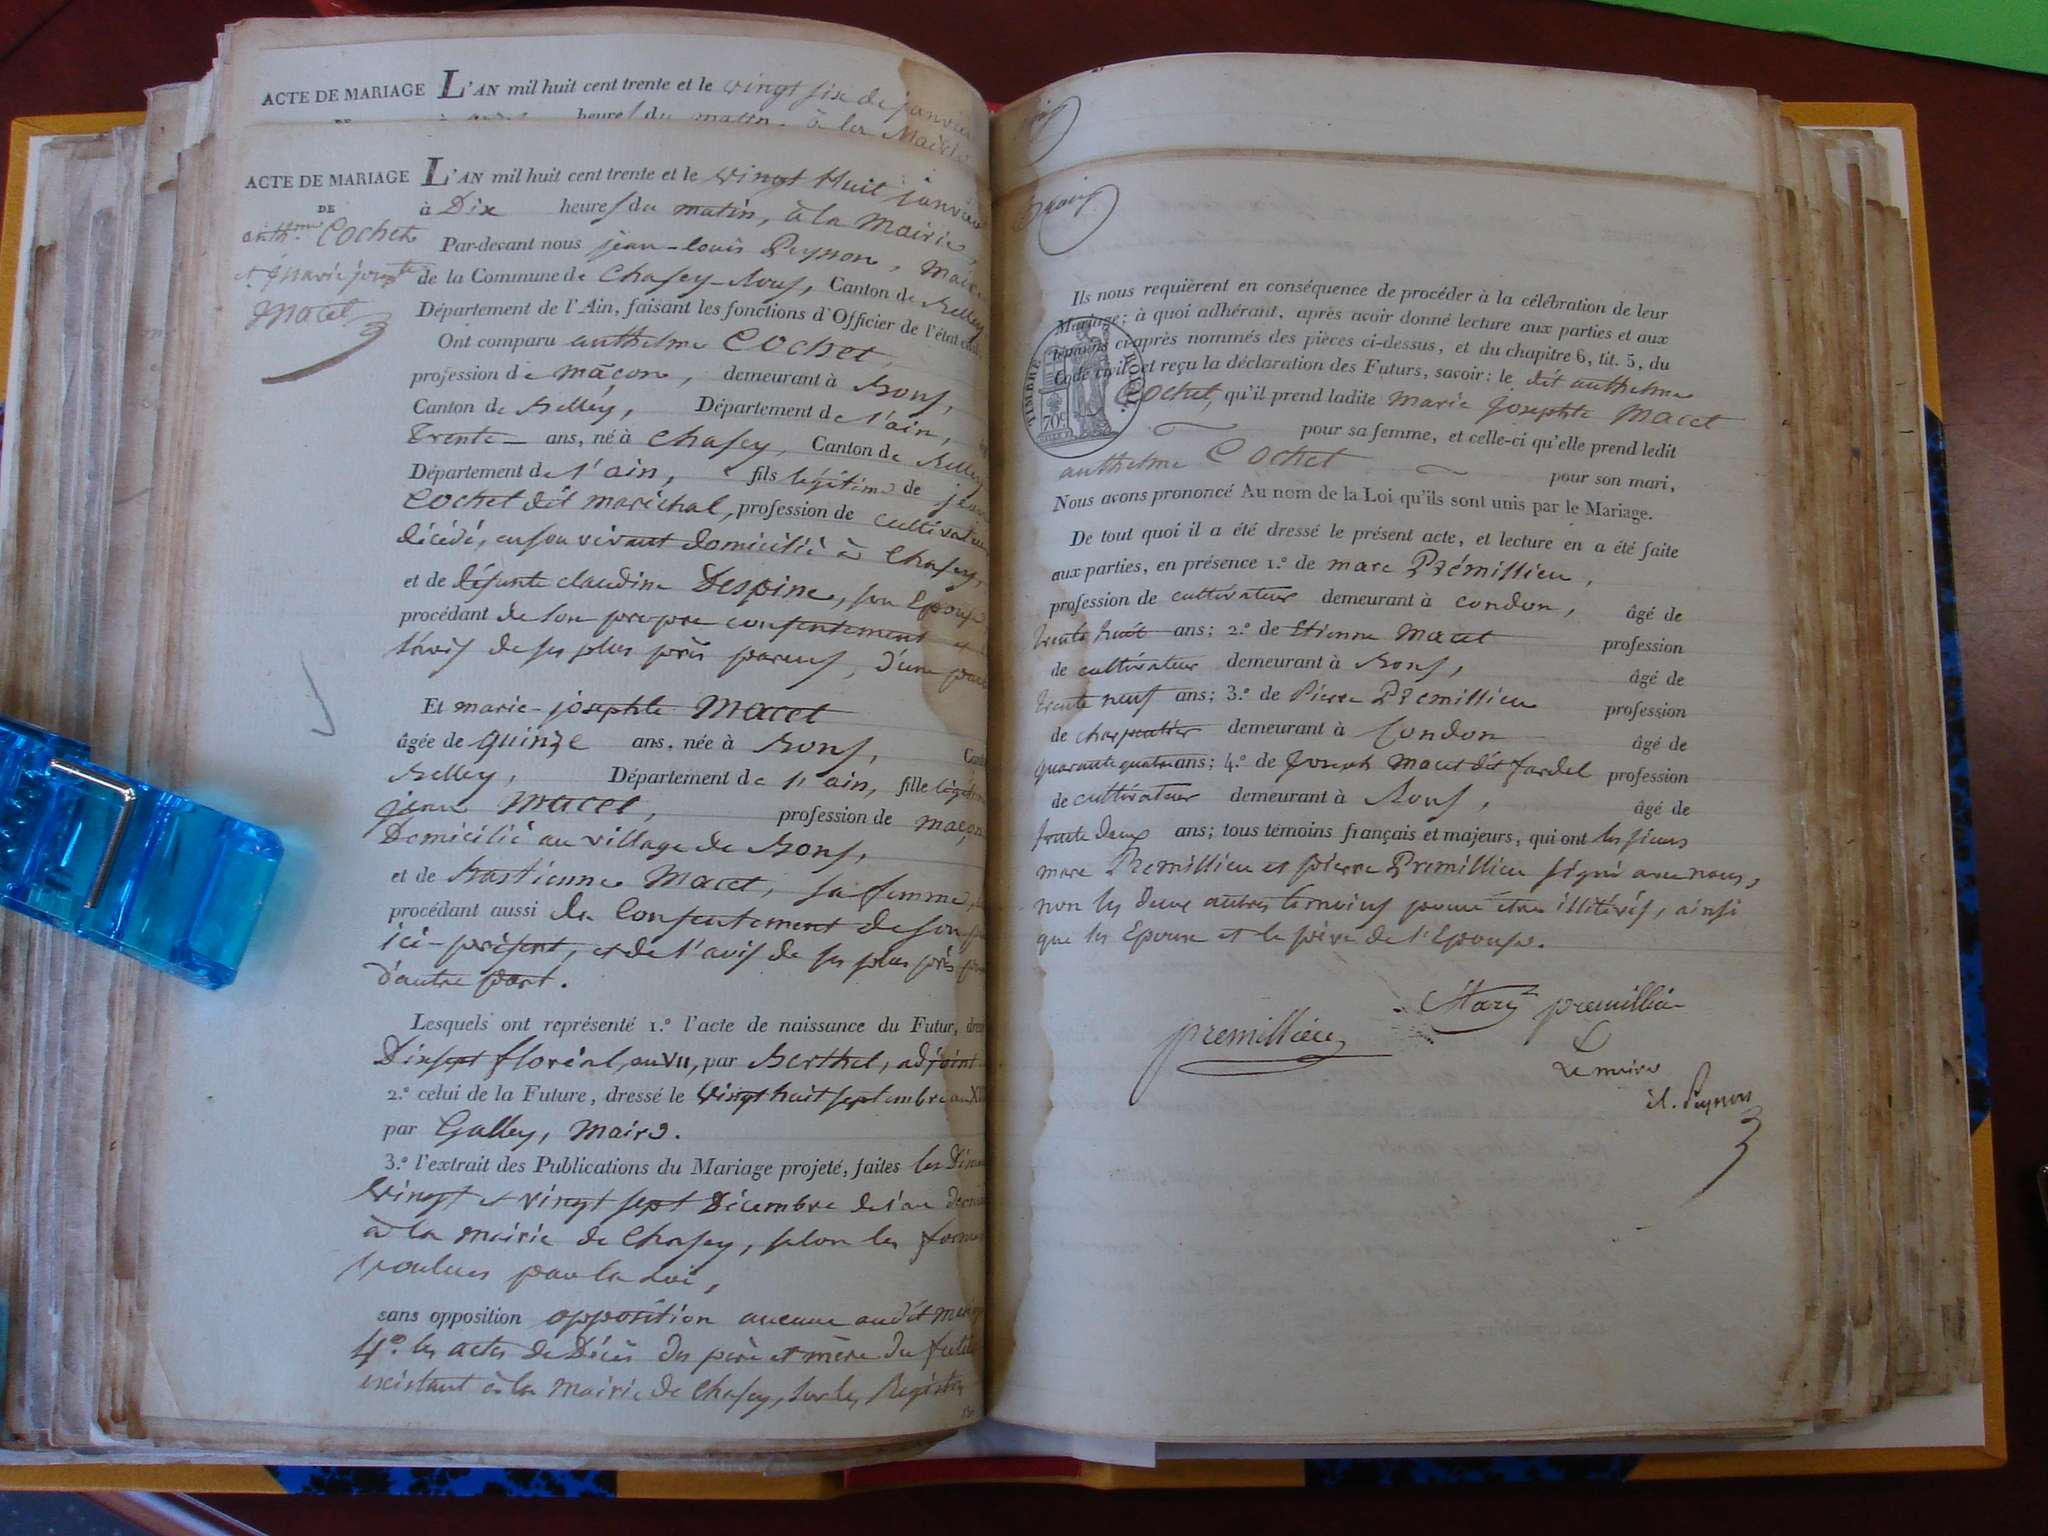 ACTE DE MARIAGE L'AN mil huit cent trente et le vingt six de janvier
heures du matin, à la Mairie
ACTE DE MARIAGE L'AN mil huit cent trente et le vingt huit janvier
DE à Dix heures du matin, à la Mairie,
anth.me Cochet Par-devant nous jean-louis Peysson, Maire
et marie josephte de la Commune de Chasey-Bons, Canton de Belley
Macet Département de l'Ain, faisant les fonctions d'Officier de l'état civil.
Ont comparu anthelme Cochet,
profession de mâçon, demeurant à Bons,
Canton de Belley, Département de l'ain,
Trente ans, né à Chasey, Canton de Belley
Département de l'ain, fils légitime de jean
Cochet dit maréchal, profession de cultivateur
décédé, en son vivant domicilié à Chasey,
et de défunte claudine Despine, son Epouse
procédant de son propre consentement et
l'avis de ses plus près parens, d'une part
Et marie-josephte Macet
âgée de quinze ans, née à Bons, Canton
Belley, Département de l'ain, fille légitime
jean Macet, profession de maçon
Domicilié au village de Bons,
et de Bastienne Macet, sa femme,
procédant aussi du Consentement de son père
ici-présent, et de l'avis de ses plus près
d'autre part.
Lesquels ont représenté 1.º l'acte de naissance du Futur, dressé
Dixsept floréal, an VII, par Berthet, adjoint
2.º celui de la Future, dressé le vingt huit septembre an
par Galley, Maire.
3.º l'extrait des Publications du Mariage projeté, faites les
vingt et vingt sept Décembre de l'an dernier
à la mairie de Chasey, selon les formes
voulues par la Loi,
sans opposition opposition aucune audit mariage
4º. les actes de Décès des père et mère du futur
existant à la mairie de Chasey, sur les Registres
Ils nous requièrent en conséquence de procéder à la célébration de leur
Mariage; à quoi adhérant, après avoir donné lecture aux parties et aux
témoins ci-après nommés des pièces ci-dessus, et du chapitre 6, tit. 5, du
Code civil, et reçu la déclaration des Futurs, savoir: le dit anthelme
Cochet, qu'il prend ladite marie josephte Macet
pour sa femme, et celle-ci qu'elle prend ledit
anthelme Cochet pour son mari,
TIMBRE ROYAL
70c
Nous avons prononcé Au nom de la Loi qu'ils sont unis par le Mariage.
De tout quoi il a été dressé le présent acte, et lecture en a été faite
aux parties, en présence 1.º de marc Prémillieu,
profession de cultivateur demeurant à condon, âgé de
trente huit ans; 2.º de Etienne Macet profession
de cultivateur demeurant à Bons, âgé de
trente neuf ans; 3.º de Pierre Premillieu profession
de charpentier demeurant à Condon âgé de
quarante quatre ans; 4.º de Joseph Macet dit fardel profession
de cultivateur demeurant à Bons, âgé de
trente deux ans; tous témoins français et majeurs, qui ont les sieurs
marc Premillieu et pierre Premillieu signé avec nous,
non les deux autres témoins pour être illitérés, ainsi
que les Epoux et le père de l'Epouse.
Marc premillieu
premillieu
Le maire
Peysson